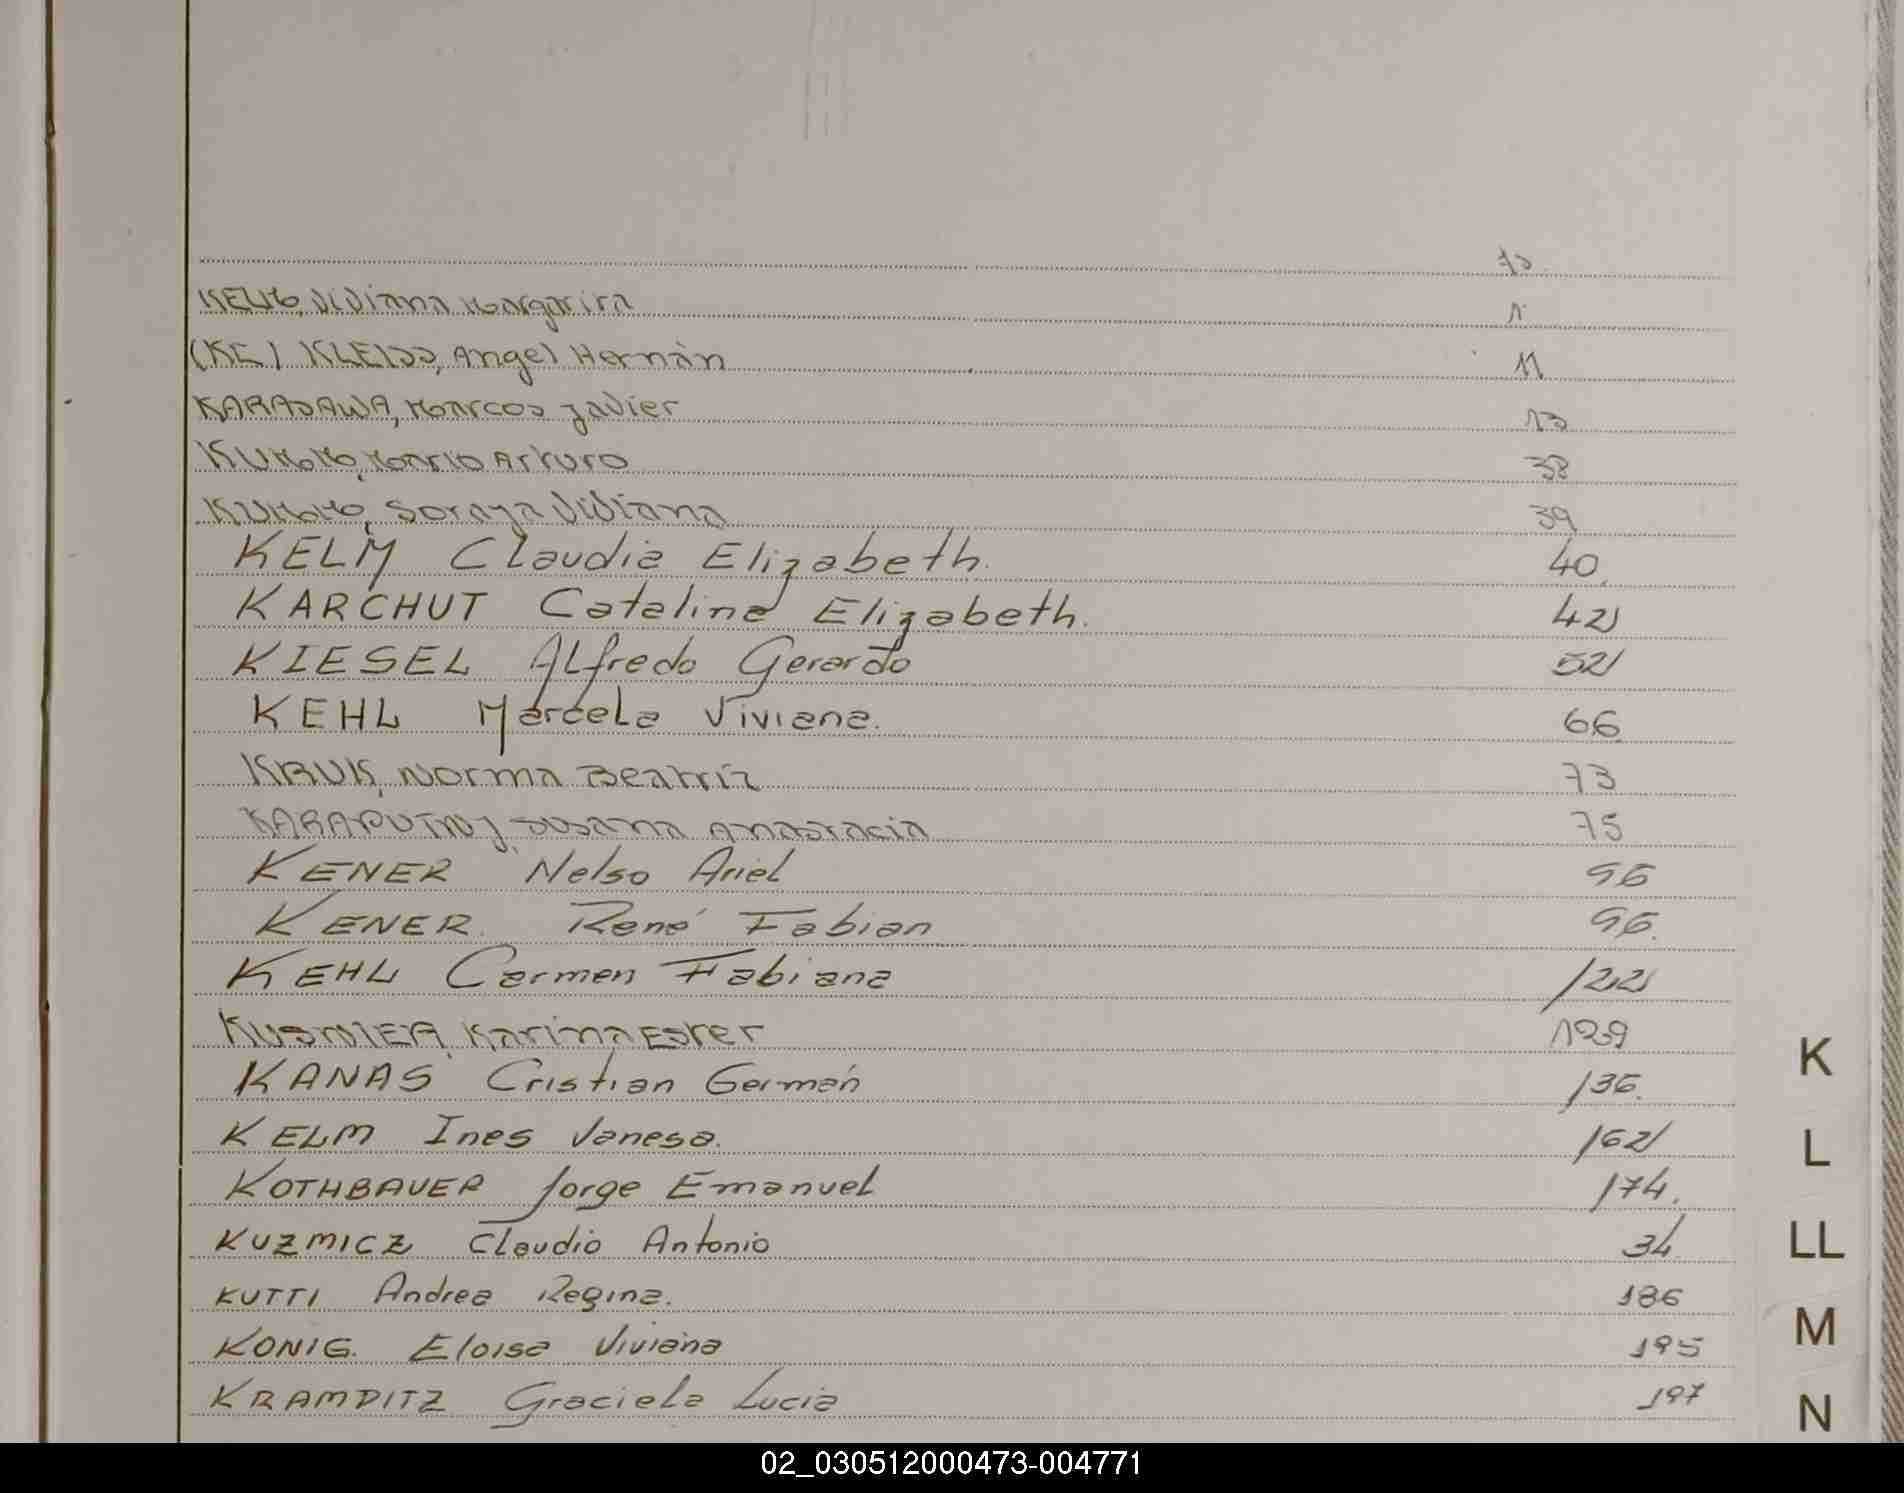 Fº
KELM, Viviana Margarita 1
(KE) KLEISS, Angel Hernán 11
KARASAWA, Marcos Javier 13
KUMM, Mario Arturo 38
KUMM, Soraya Viviana 39
KELM Claudia Elizabeth. 40
KARCHUT Catalina Elizabeth. 42
KIESEL Alfredo Gerardo 52
KEHL Marcela Viviana. 66
KRUK, Norma Beatriz 73
KARAPUTNJ, Susana Anastacia 75
KENER Nelso Ariel 96
KENER. René Fabian 96.
KEHL Carmen Fabiana 122
KUSMIER, Karina Ester 129
KANAS Cristian Germán 136.
KELM Ines Vanesa. 162
KOTHBAUER Jorge Emanuel 174.
KUZMICZ Claudio Antonio 34
KUTTI Andrea Regina. 186
KONIG. Eloisa Viviana 195
KRAMPITZ Graciela Lucia 197
K
L
LL
M
N
02_030512000473-004771